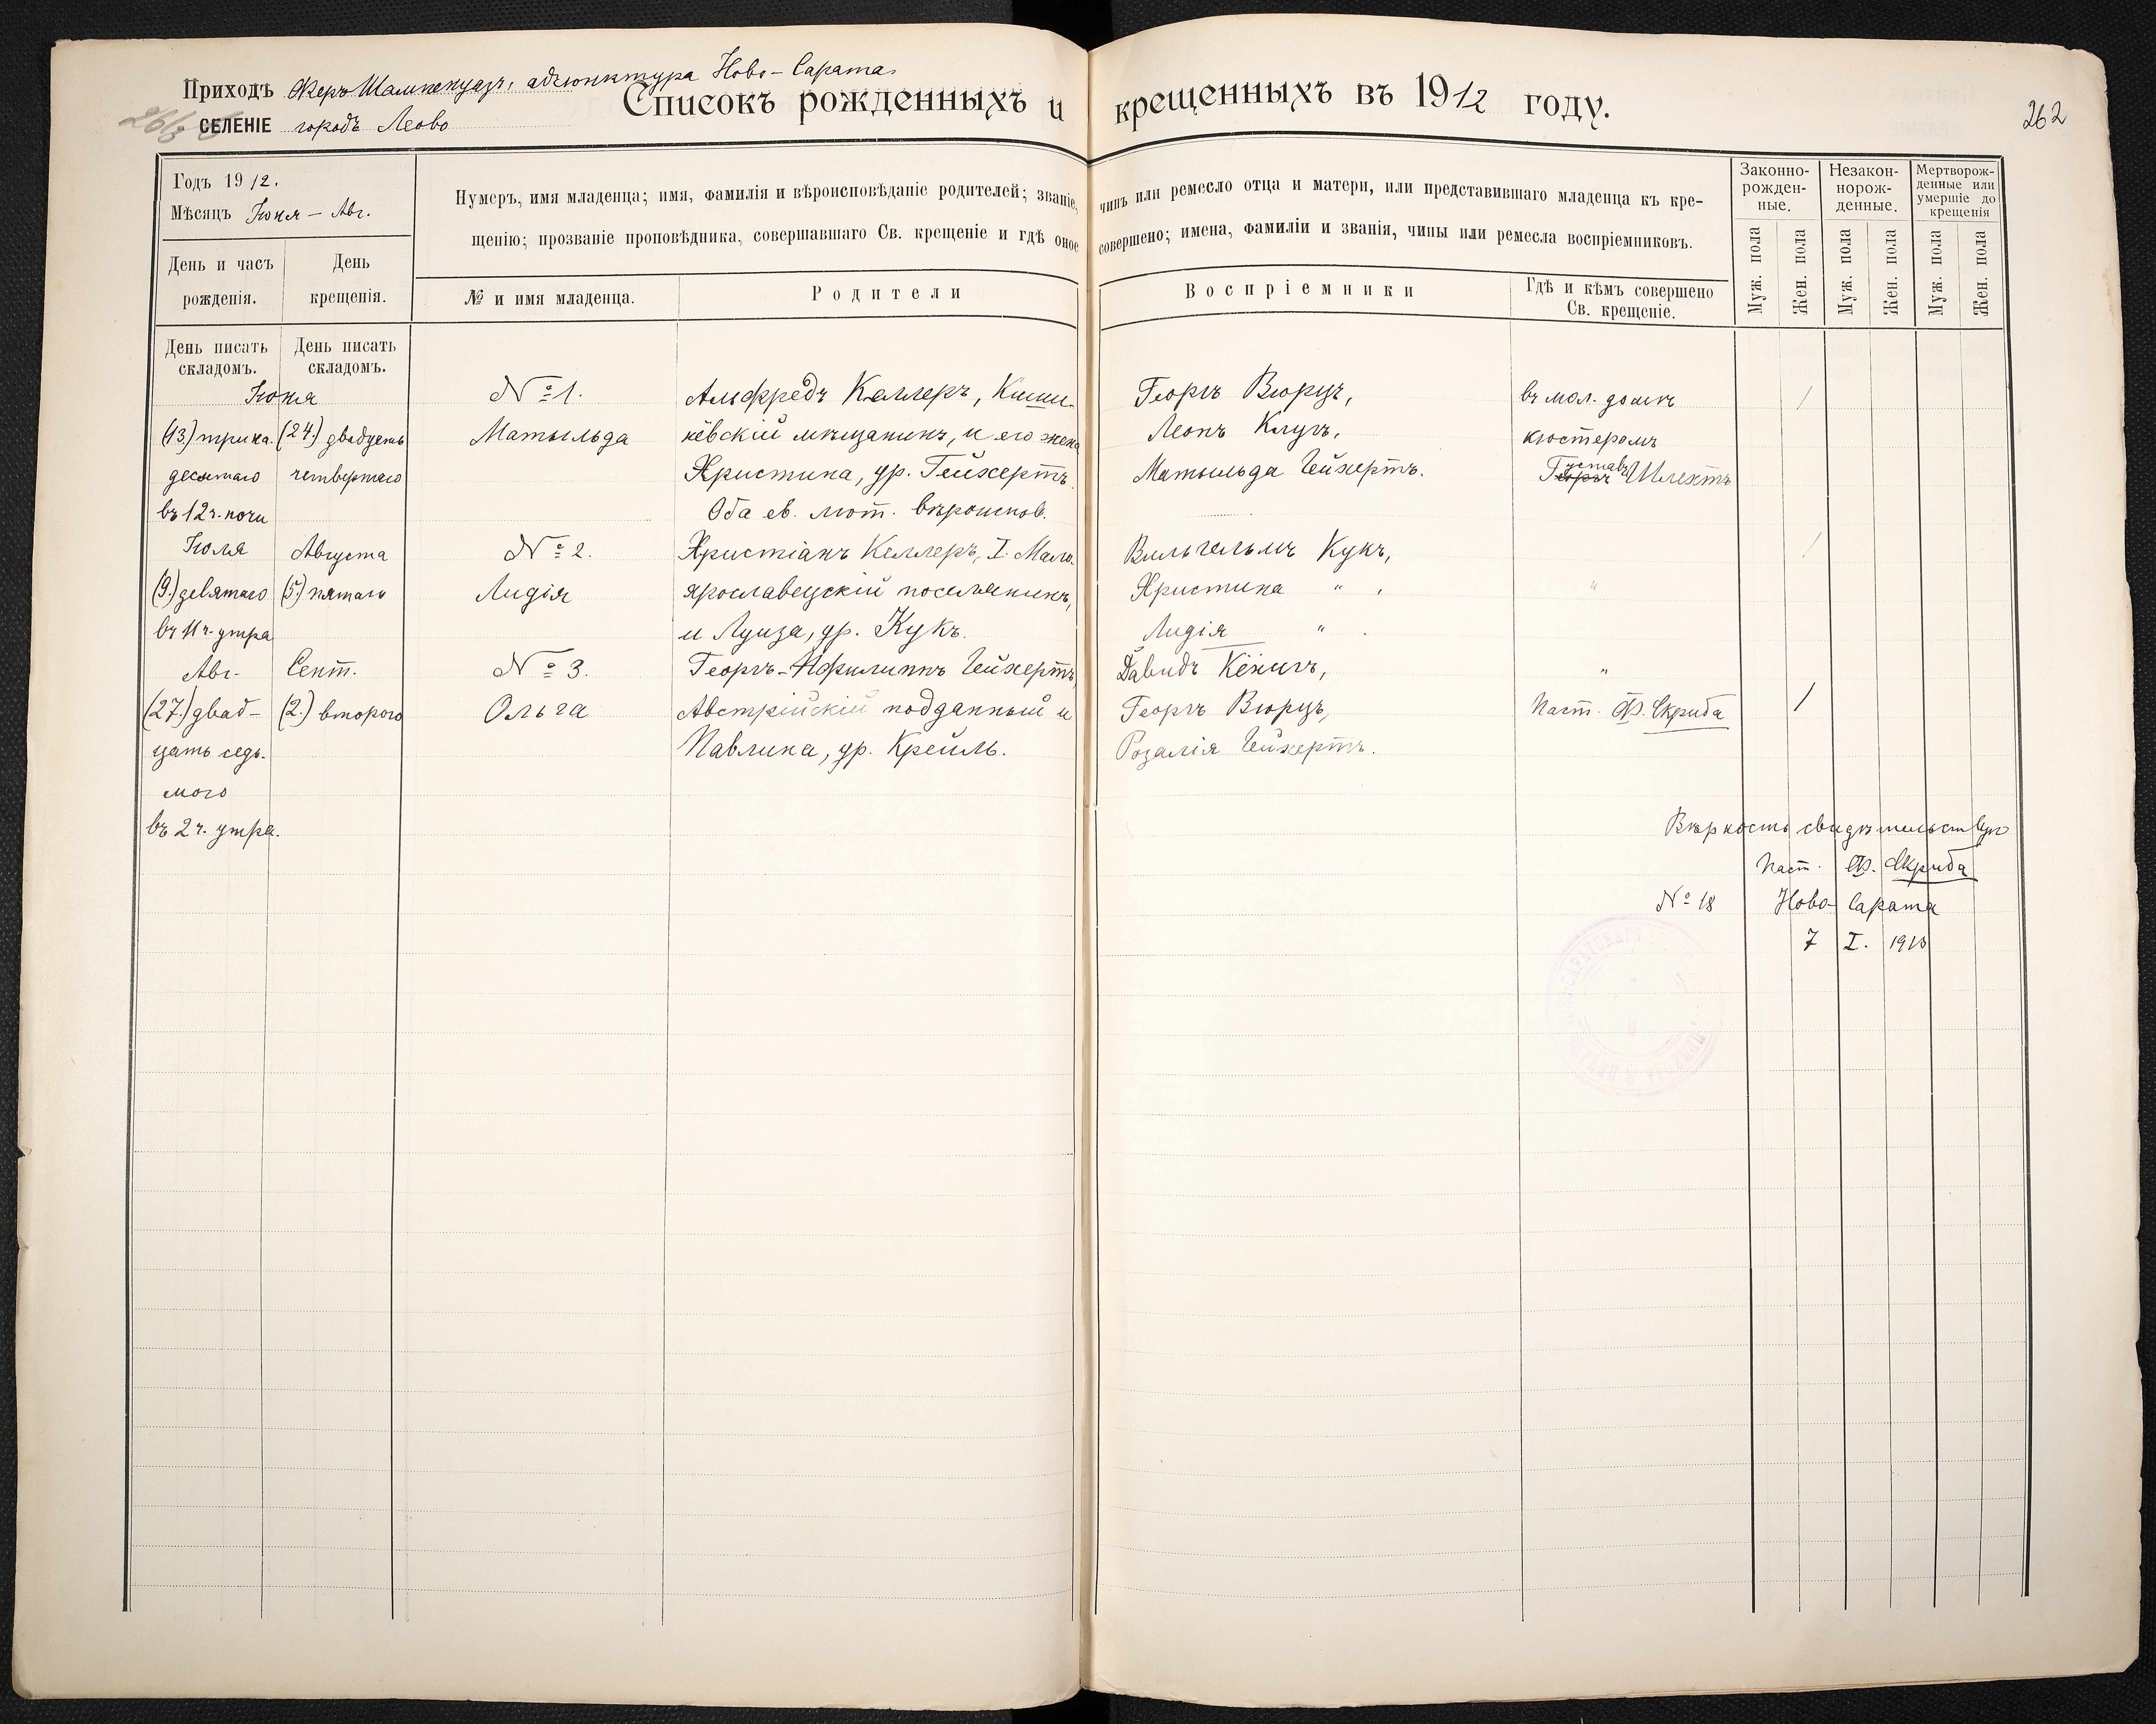 Приходъ Феръ-Шампенуазъ, адъюнктура Ново-Сарата
СЕЛЕНІЕ городъ Леово
Списокъ рожденныхъ и крещенныхъ въ 1912 году.
262
Годъ 1912.
Мѣсяцъ Іюня – Авг.
День и часъ рожденія.
День крещенія.
Нумеръ, имя младенца; имя, фамилія и вѣроисповѣданіе родителей; званіе, чинъ или ремесло отца и матери, или представившаго младенца къ кре-
щенію; прозваніе проповѣдника, совершавшаго Св. крещеніе и гдѣ оное совершено; имена, фамиліи и званія, чины или ремесла воспріемниковъ.
№ и имя младенца.
Родители
Воспріемники
Гдѣ и кѣмъ совершено
Св. крещеніе.
Законно-
рожден-
ные.
Незакон-
норож-
денные.
Мертворож-
денные или
умершіе до
крещенія
Муж. пола
Жен. пола
Муж. пола
Жен. пола
Муж. пола
Жен. пола
День писать складомъ.
День писать складомъ.
Іюня
(13.) трина.
десятаго
въ 12 ч. ночи
(24.) двадцать
четвертаго
№ 1.
Матыльда
Альфредъ Келлеръ, Киши-
нёвскій мѣщанинъ, и его жена
Христина, ур. Гейжертъ.
Оба ев. лют. вѣроиспов.
Георгъ Вюрцъ,
Леонъ Клугъ,
Матыльда Гейжертъ.
въ мол. домѣ
кюстеромъ
Густавъ Шлехтъ
/
Іюля
(9.) девятаго
въ 11 ч. утра
Августа
(5.) пятаго
№ 2.
Лидія
Христіанъ Келлеръ, I. Мало-
ярославецскій поселянинъ,
и Луиза, ур. Кукъ.
Вильгельмъ Кукъ,
Христина " ,
Лидія " .
"
/
Авг.
(27.) двад-
цать седь-
мого
въ 2 ч. утра.
Сент.
(2.) второго
№ 3.
Ольга
Георгъ-Филиппъ Гейжертъ,
Австрійскій подданный и
Павлина, ур. Крейль.
Давидъ Кёнигъ,
Георгъ Вюрцъ,
Розалія Гейжертъ.
"
Паст. Ф. Скриба
/
Вѣрность свидѣтельствую
Паст. Ф. Скриба
№ 18 Ново-Сарата
7 I. 1913